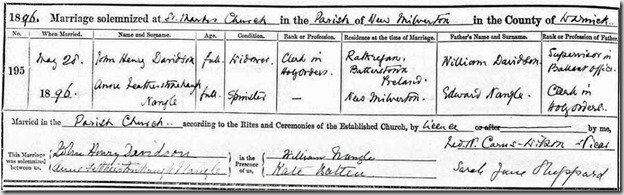 1896. Marriage solemnized at St. Mark's Church in the Parish of New Milverton in the County of Warwick
No. When Married. Name and Surname. Age. Condition. Rank or Profession. Residence at the time of Marriage. Father's Name and Surname. Rank or Profession of Father.
195 May 28. 1896. John Henry Davidson full. Widower Clerk in Holy Orders. Batterstown Ireland. William Davidson. Supervisor in Ballast Office.
Anne Featherstonehaugh Nangle full. Spinster — New Milverton. Edward Nangle. Clerk in Holy Orders.
Married in the Parish Church according to the Rites and Ceremonies of the Established Church, by Licence or after by me,
Carus-Wilson Vicar
This Marriage was solemnized between us, John Henry Davidson in the Presence of us, William Nangle
Anne Featherstonhaugh Nangle Kate Sarah Jane Sheppard